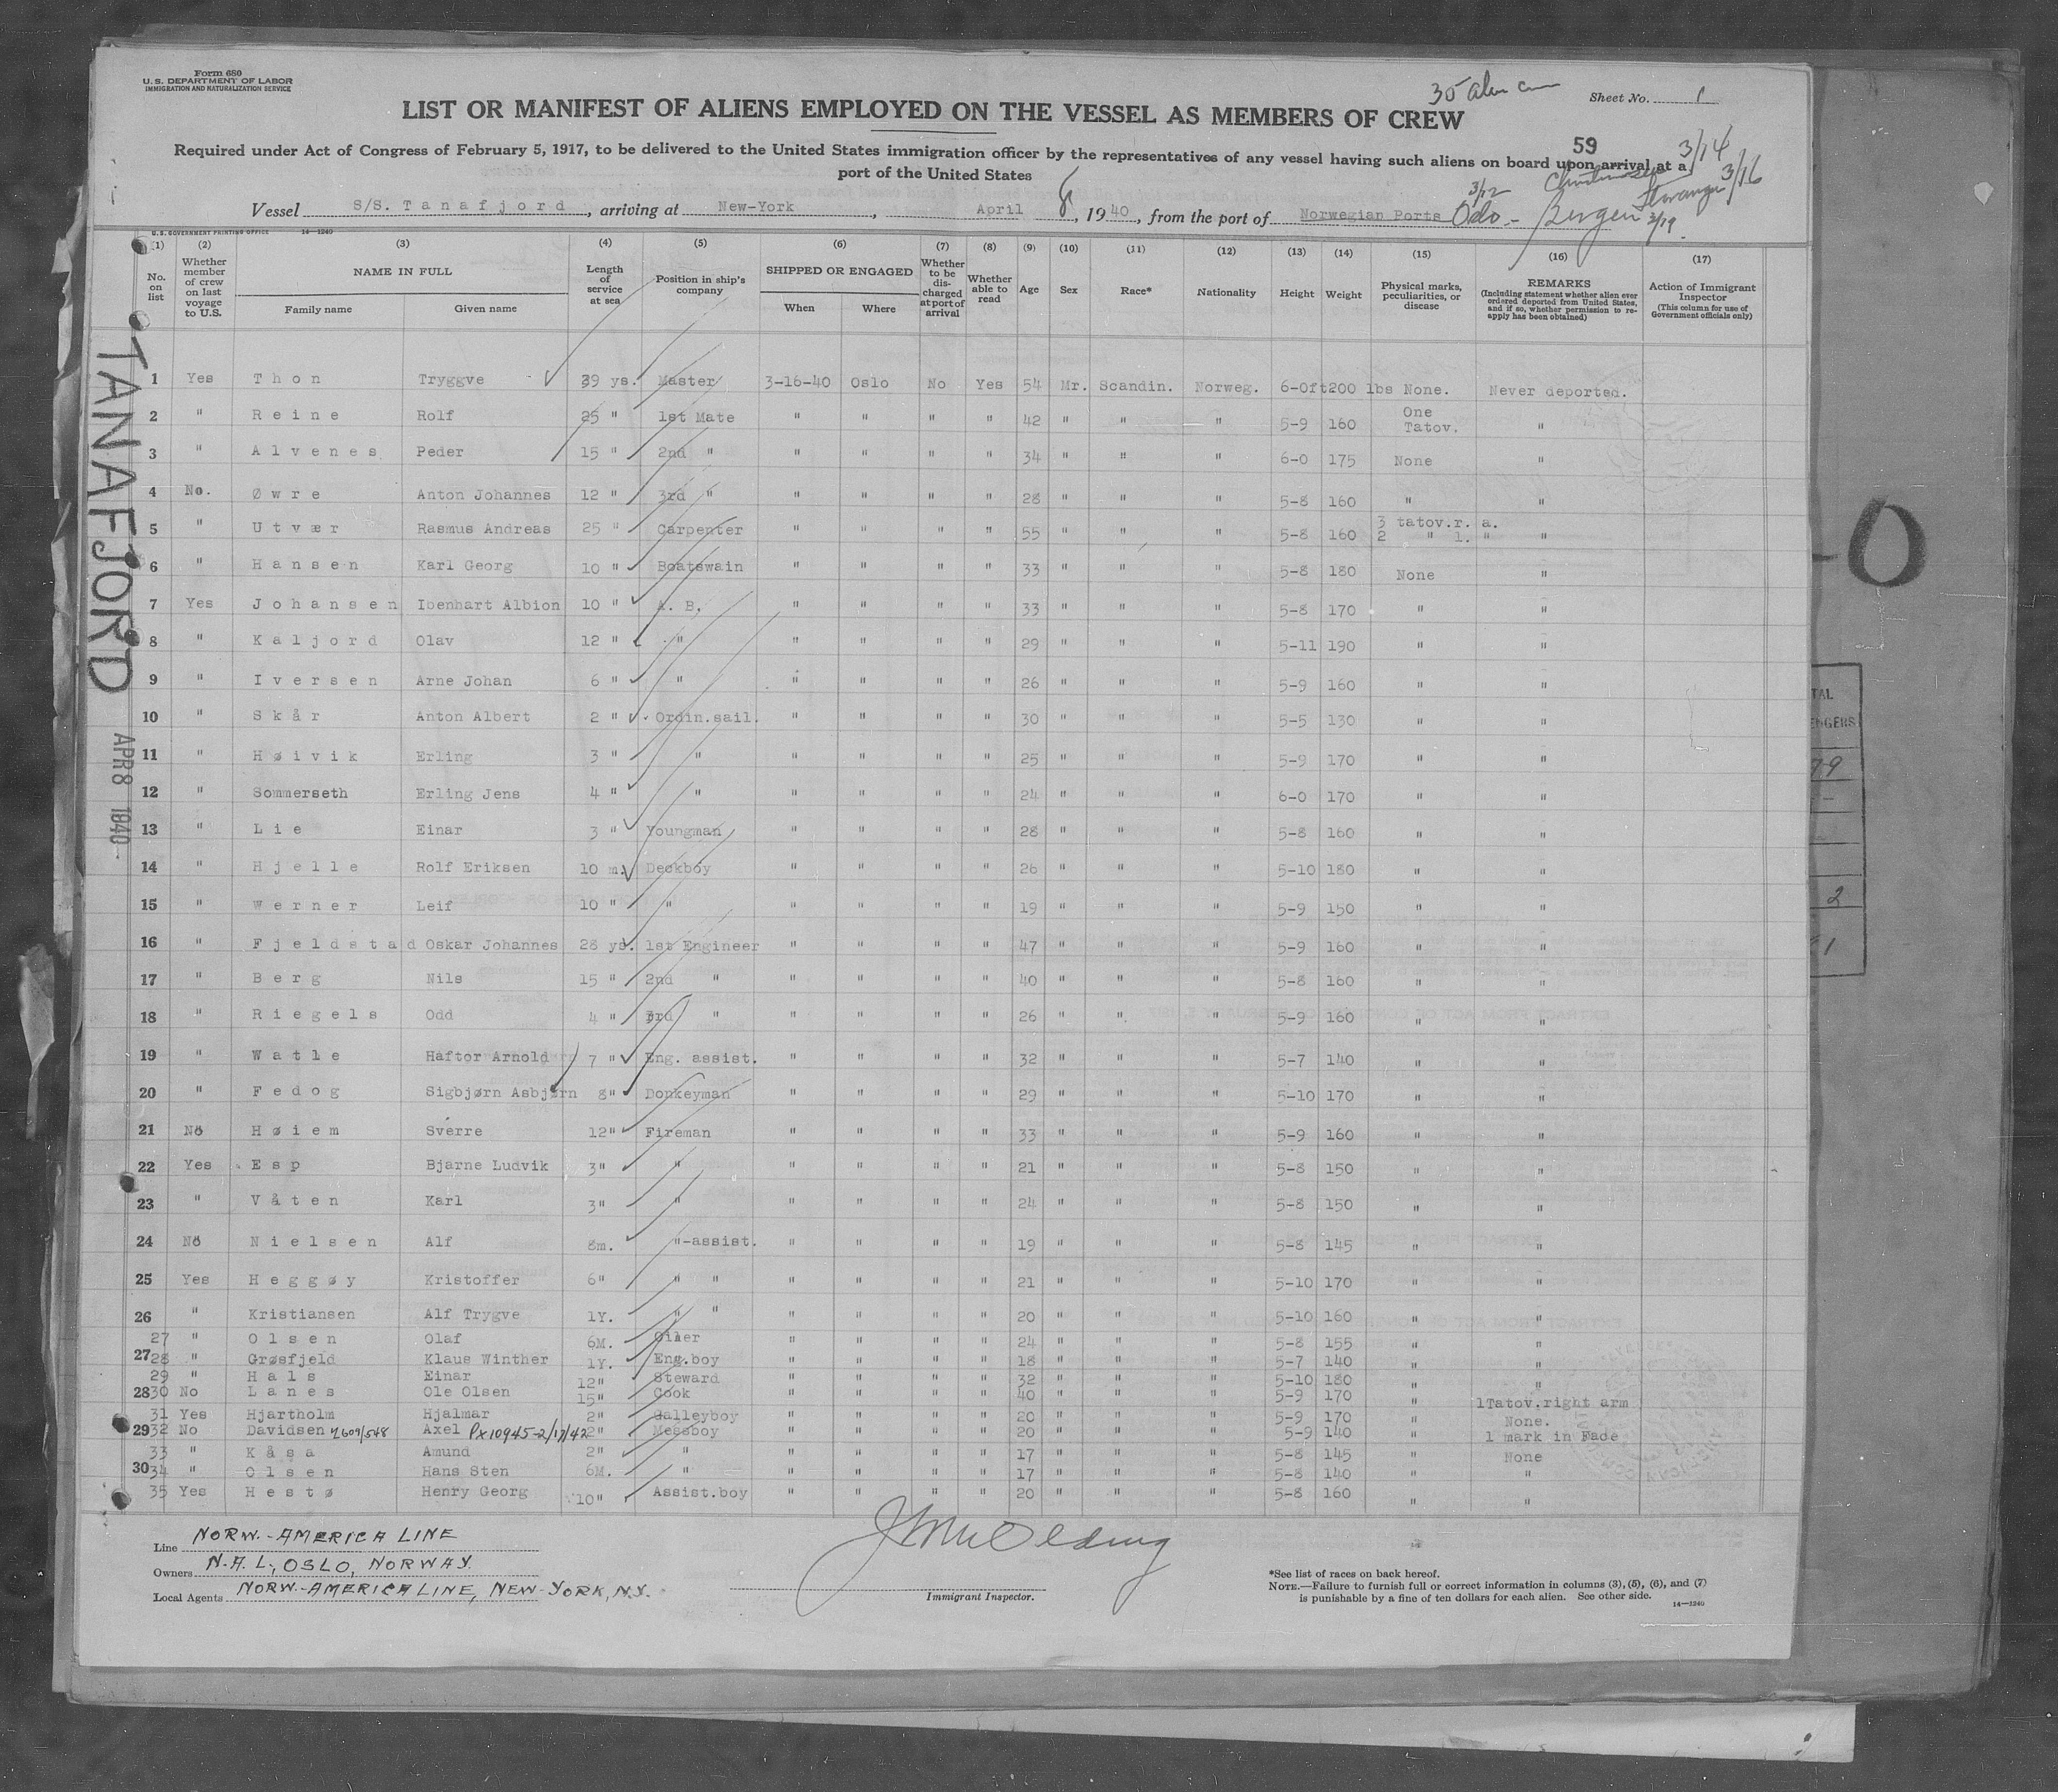 Form 680
U. S. DEPARTMENT OF LABOR
IMMIGRATION AND NATURALIZATION SERVICE
35 alien
Sheet No. 1
LIST OR MANIFEST OF ALIENS EMPLOYED ON THE VESSEL AS MEMBERS OF CREW
59
Required under Act of Congress of February 5, 1917, to be delivered to the United States immigration officer by the representatives of any vessel having such aliens on board upon arrival at a
port of the United States
3/14
3/12 3/16
Vessel S/S. Tanafjord, arriving at New-York, April 8, 1940, from the port of Norwegian Ports Oslo - Bergen 3/19
U.S. GOVERNMENT PRINTING OFFICE 14—1240
(1) (2) (3) (4) (5) (6) (7) (8) (9) (10) (11) (12) (13) (14) (15) (16) (17)
No. on list
Whether member of crew on last voyage to U.S.
NAME IN FULL
Family name
Given name
Length of service at sea
Position in ship's company
SHIPPED OR ENGAGED
When
Where
Whether to be discharged at port of arrival
Whether able to read
Age
Sex
Race*
Nationality
Height
Weight
Physical marks, peculiarities, or disease
REMARKS
(Including statement whether alien ever ordered deported from United States, and if so, whether permission to reapply has been obtained)
Action of Immigrant Inspector
(This column for use of Government officials only)
TANAFJORD
APR 8 1940
1 Yes Thon Tryggve 39 ys. Master 3-16-40 Oslo No Yes 54 Mr. Scandin. Norweg. 6-0ft 200 lbs None. Never deported.
2 " Reine Rolf 25 " 1st Mate " " " " 42 " " " 5-9 160 One Tatov. "
3 " Alvenes Peder 15 " 2nd " " " " " 34 " " " 6-0 175 None "
4 No. Øwre Anton Johannes 12 " 3rd " " " " " 28 " " " 5-8 160 " "
5 " Utvær Rasmus Andreas 25 " Carpenter " " " " 55 " " " 5-8 160 3 tatov.r. a. 2 " l. " "
6 " Hansen Karl Georg 10 " Boatswain " " " " 33 " " " 5-8 180 None "
7 Yes Johansen Ibenhart Albion 10 " A. B. " " " " 33 " " " 5-8 170 " "
8 " Kaljord Olav 12 " " " " " " 29 " " " 5-11 190 " "
9 " Iversen Arne Johan 6 " " " " " " 26 " " " 5-9 160 " "
10 " Skår Anton Albert 2 " Ordin.sail. " " " " 30 " " " 5-5 130 " "
11 " Høivik Erling 3 " " " " " " 25 " " " 5-9 170 " "
12 " Sommerseth Erling Jens 4 " " " " " " 24 " " " 6-0 170 " "
13 " Lie Einar 3 " Youngman " " " " 28 " " " 5-8 160 " "
14 " Hjelle Rolf Eriksen 10 m. Deckboy " " " " 26 " " " 5-10 180 " "
15 " Werner Leif 10 " " " " " " 19 " " " 5-9 150 " "
16 " Fjeldstad Oskar Johannes 28 ys. 1st Engineer " " " " 47 " " " 5-9 160 " "
17 " Berg Nils 15 " 2nd " " " " " 40 " " " 5-8 160 " "
18 " Riegels Odd 4 " 3rd " " " " " 26 " " " 5-9 160 " "
19 " Watle Haftor Arnold 7 " Eng. assist. " " " " 32 " " " 5-7 140 " "
20 " Fedog Sigbjørn Asbjørn 8" Donkeyman " " " " 29 " " " 5-10 170 " "
21 No Høiem Sverre 12" Fireman " " " " 33 " " " 5-9 160 " "
22 Yes Esp Bjarne Ludvik 3" " " " " " 21 " " " 5-8 150 " "
23 " Våten Karl 3" " " " " " 24 " " " 5-8 150 " "
24 No Nielsen Alf 8m. "-assist. " " " " 19 " " " 5-8 145 " "
25 Yes Heggøy Kristoffer 6" " " " " " " 21 " " " 5-10 170 " "
26 " Kristiansen Alf Trygve 1Y. " " " " " " 20 " " " 5-10 160 " "
27 " Olsen Olaf 6M. Oiler " " " " 24 " " " 5-8 155 " "
27 28 " Grøsfjeld Klaus Winther 1Y. Eng.boy " " " " 18 " " " 5-7 140 " "
29 " Hals Einar 12" Steward " " " " 32 " " " 5-10 180 " "
28 30 No Lanes Ole Olsen 15" Cook " " " " 40 " " " 5-9 170 " 1Tatov.right arm
31 Yes Hjartholm Hjalmar 2" Galleyboy " " " " 20 " " " 5-9 170 " None.
29 32 No Davidsen 2609/548 Axel Px10945-2/17/42 2" Messboy " " " " 20 " " " 5-9 140 " 1 mark in Fade
33 " Kåsa Amund 2" " " " " " 17 " " " 5-8 145 " None
30 34 " Olsen Hans Sten 6M. " " " " " 17 " " " 5-8 140 " "
35 Yes Hestø Henry Georg 10" Assist.boy " " " " 20 " " " 5-8 160 " "
Line NORW.-AMERICA LINE
Owners N.A.L., OSLO, NORWAY
Local Agents NORW.-AMERICA LINE, NEW-YORK, N.Y.
Immigrant Inspector.
*See list of races on back hereof.
NOTE.—Failure to furnish full or correct information in columns (3), (5), (6), and (7)
is punishable by a fine of ten dollars for each alien. See other side.
14—1240